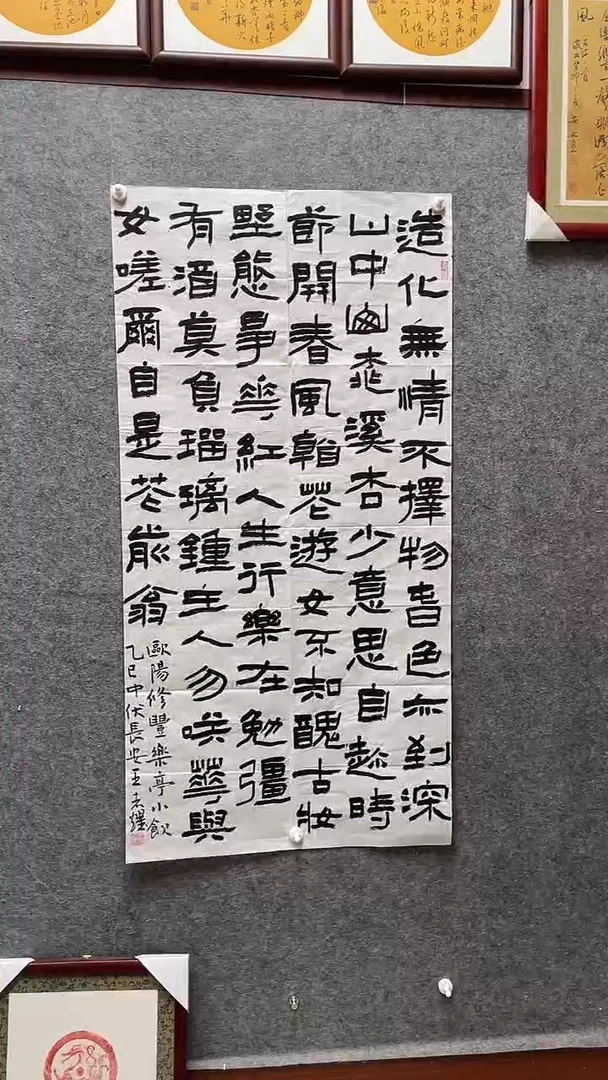 造化無情不擇物春色亦到深
山中幽桃溪杏少意思自趁時
節開春風看花遊女不知醜古妝
野態爭華紅人生行樂在勉彊
有酒莫負瑠璃鍾主人勿咲華與
女嗟爾自是花前翁
歐陽修豐樂亭小飲
乙巳中伏長安王
風